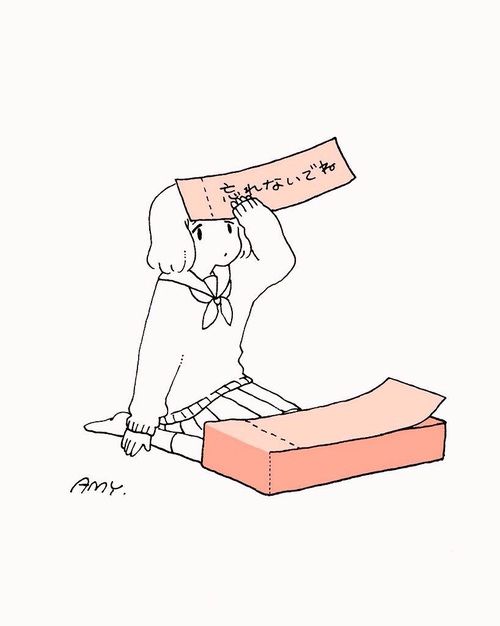 忘れないでね
AMY.